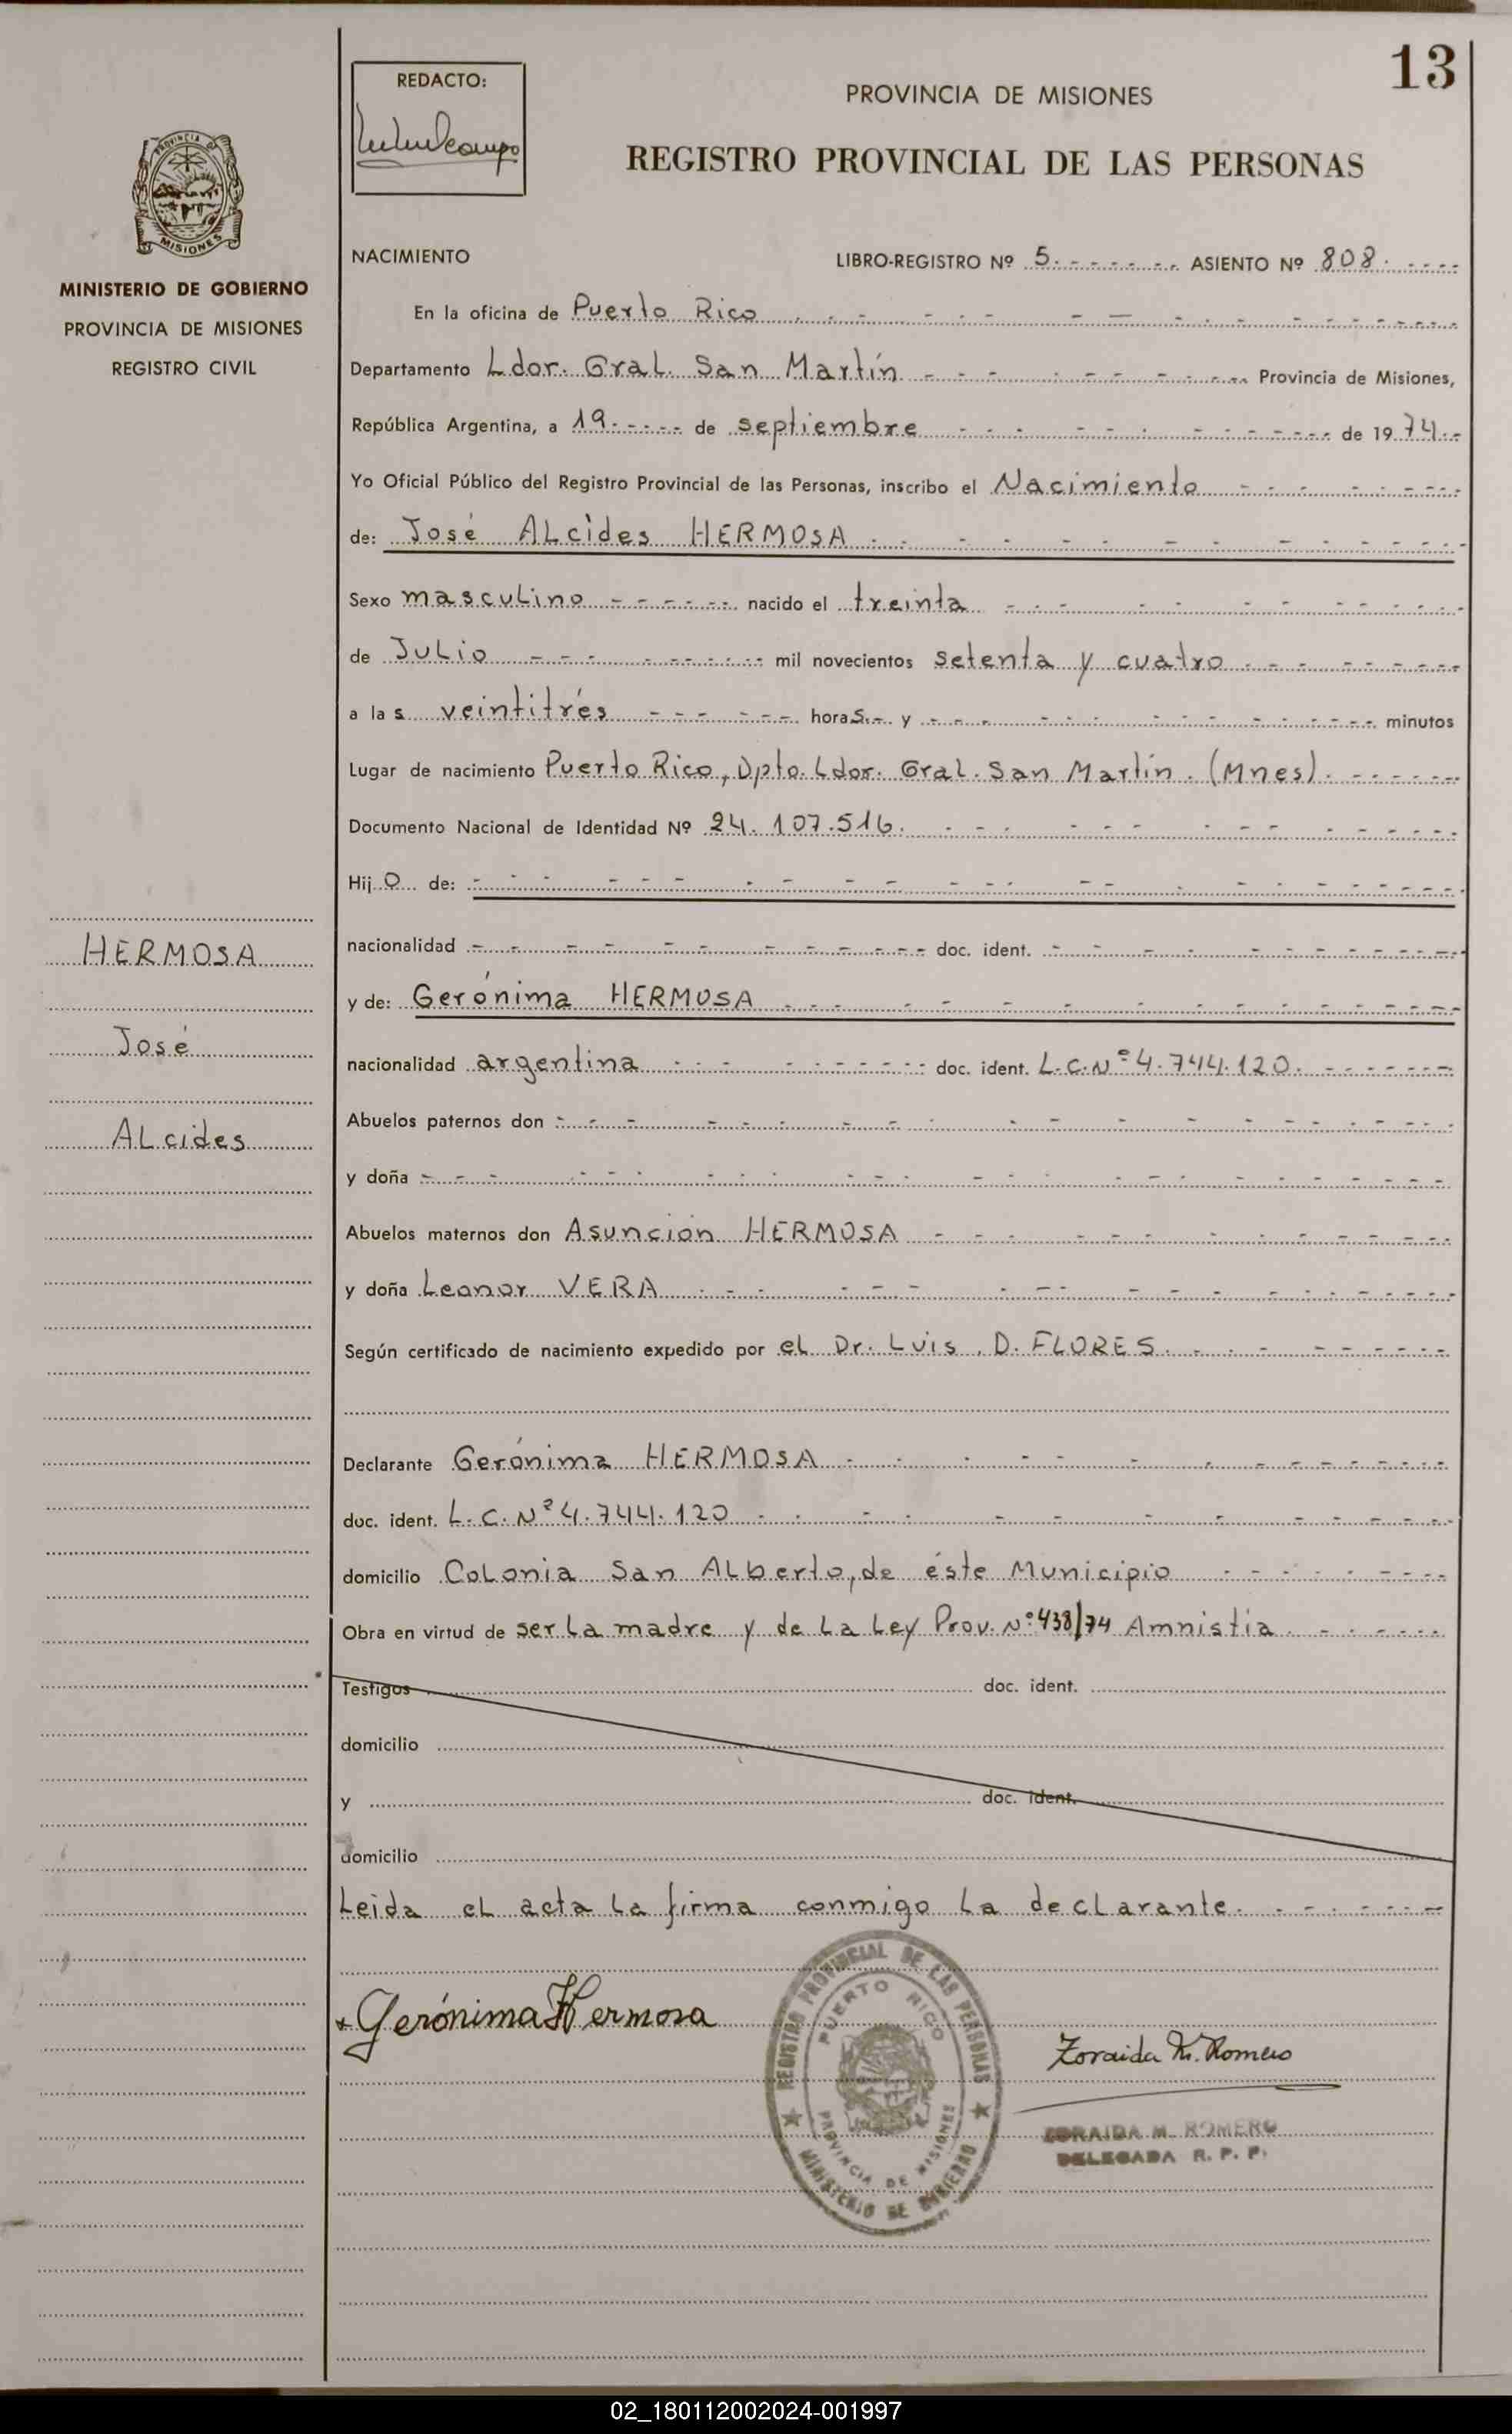 13
REDACTO:
PROVINCIA DE MISIONES
REGISTRO PROVINCIAL DE LAS PERSONAS
PROVINCIA DE
MISIONES
MINISTERIO DE GOBIERNO
PROVINCIA DE MISIONES
REGISTRO CIVIL
NACIMIENTO LIBRO-REGISTRO Nº 5. ASIENTO Nº 808.
En la oficina de Puerto Rico
Departamento Ldor. Gral. San Martín Provincia de Misiones,
República Argentina, a 19 de septiembre de 1974
Yo Oficial Público del Registro Provincial de las Personas, inscribo el Nacimiento
de: José ALcides HERMOSA
Sexo masculino nacido el treinta
de Julio mil novecientos setenta y cuatro
a las veintitrés horas y minutos
Lugar de nacimiento Puerto Rico, Dpto. Ldor. Gral. San Martín. (Mnes).
Documento Nacional de Identidad Nº 24.107.516.
Hijo de:
HERMOSA
nacionalidad doc. ident.
y de: Gerónima HERMOSA
José
nacionalidad argentina doc. ident. L.C.Nº 4.744.120.
Abuelos paternos don
ALcides
y doña
Abuelos maternos don Asunción HERMOSA
y doña Leonor VERA
Según certificado de nacimiento expedido por eL Dr. Luis. D. FLORES.
Declarante Gerónima HERMOSA
doc. ident. L.C.Nº 4.744.120
domicilio Colonia San ALberto, de éste Municipio
Obra en virtud de ser la madre y de La Ley Prov. Nº 438/74 Amnistia
Testigos doc. ident.
domicilio
y doc. ident.
domicilio
Leida el acta la firma conmigo la declarante.
Gerónima Hermosa
REGISTRO PROVINCIAL DE LAS PERSONAS
PUERTO RICO
PROVINCIA DE MISIONES
MINISTERIO DE GOBIERNO
Zoraida M. Romero
ZORAIDA M. ROMERO
DELEGADA R. P. P.
02_180112002024-001997